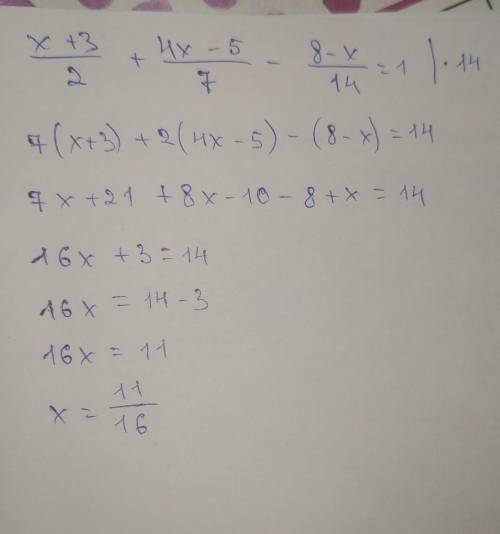 (x+3)/2 + (4x-5)/7 - (8-x)/14 = 1 | · 14
7(x+3) + 2(4x-5) - (8-x) = 14
7x + 21 + 8x - 10 - 8 + x = 14
16x + 3 = 14
16x = 14 - 3
16x = 11
x = 11/16